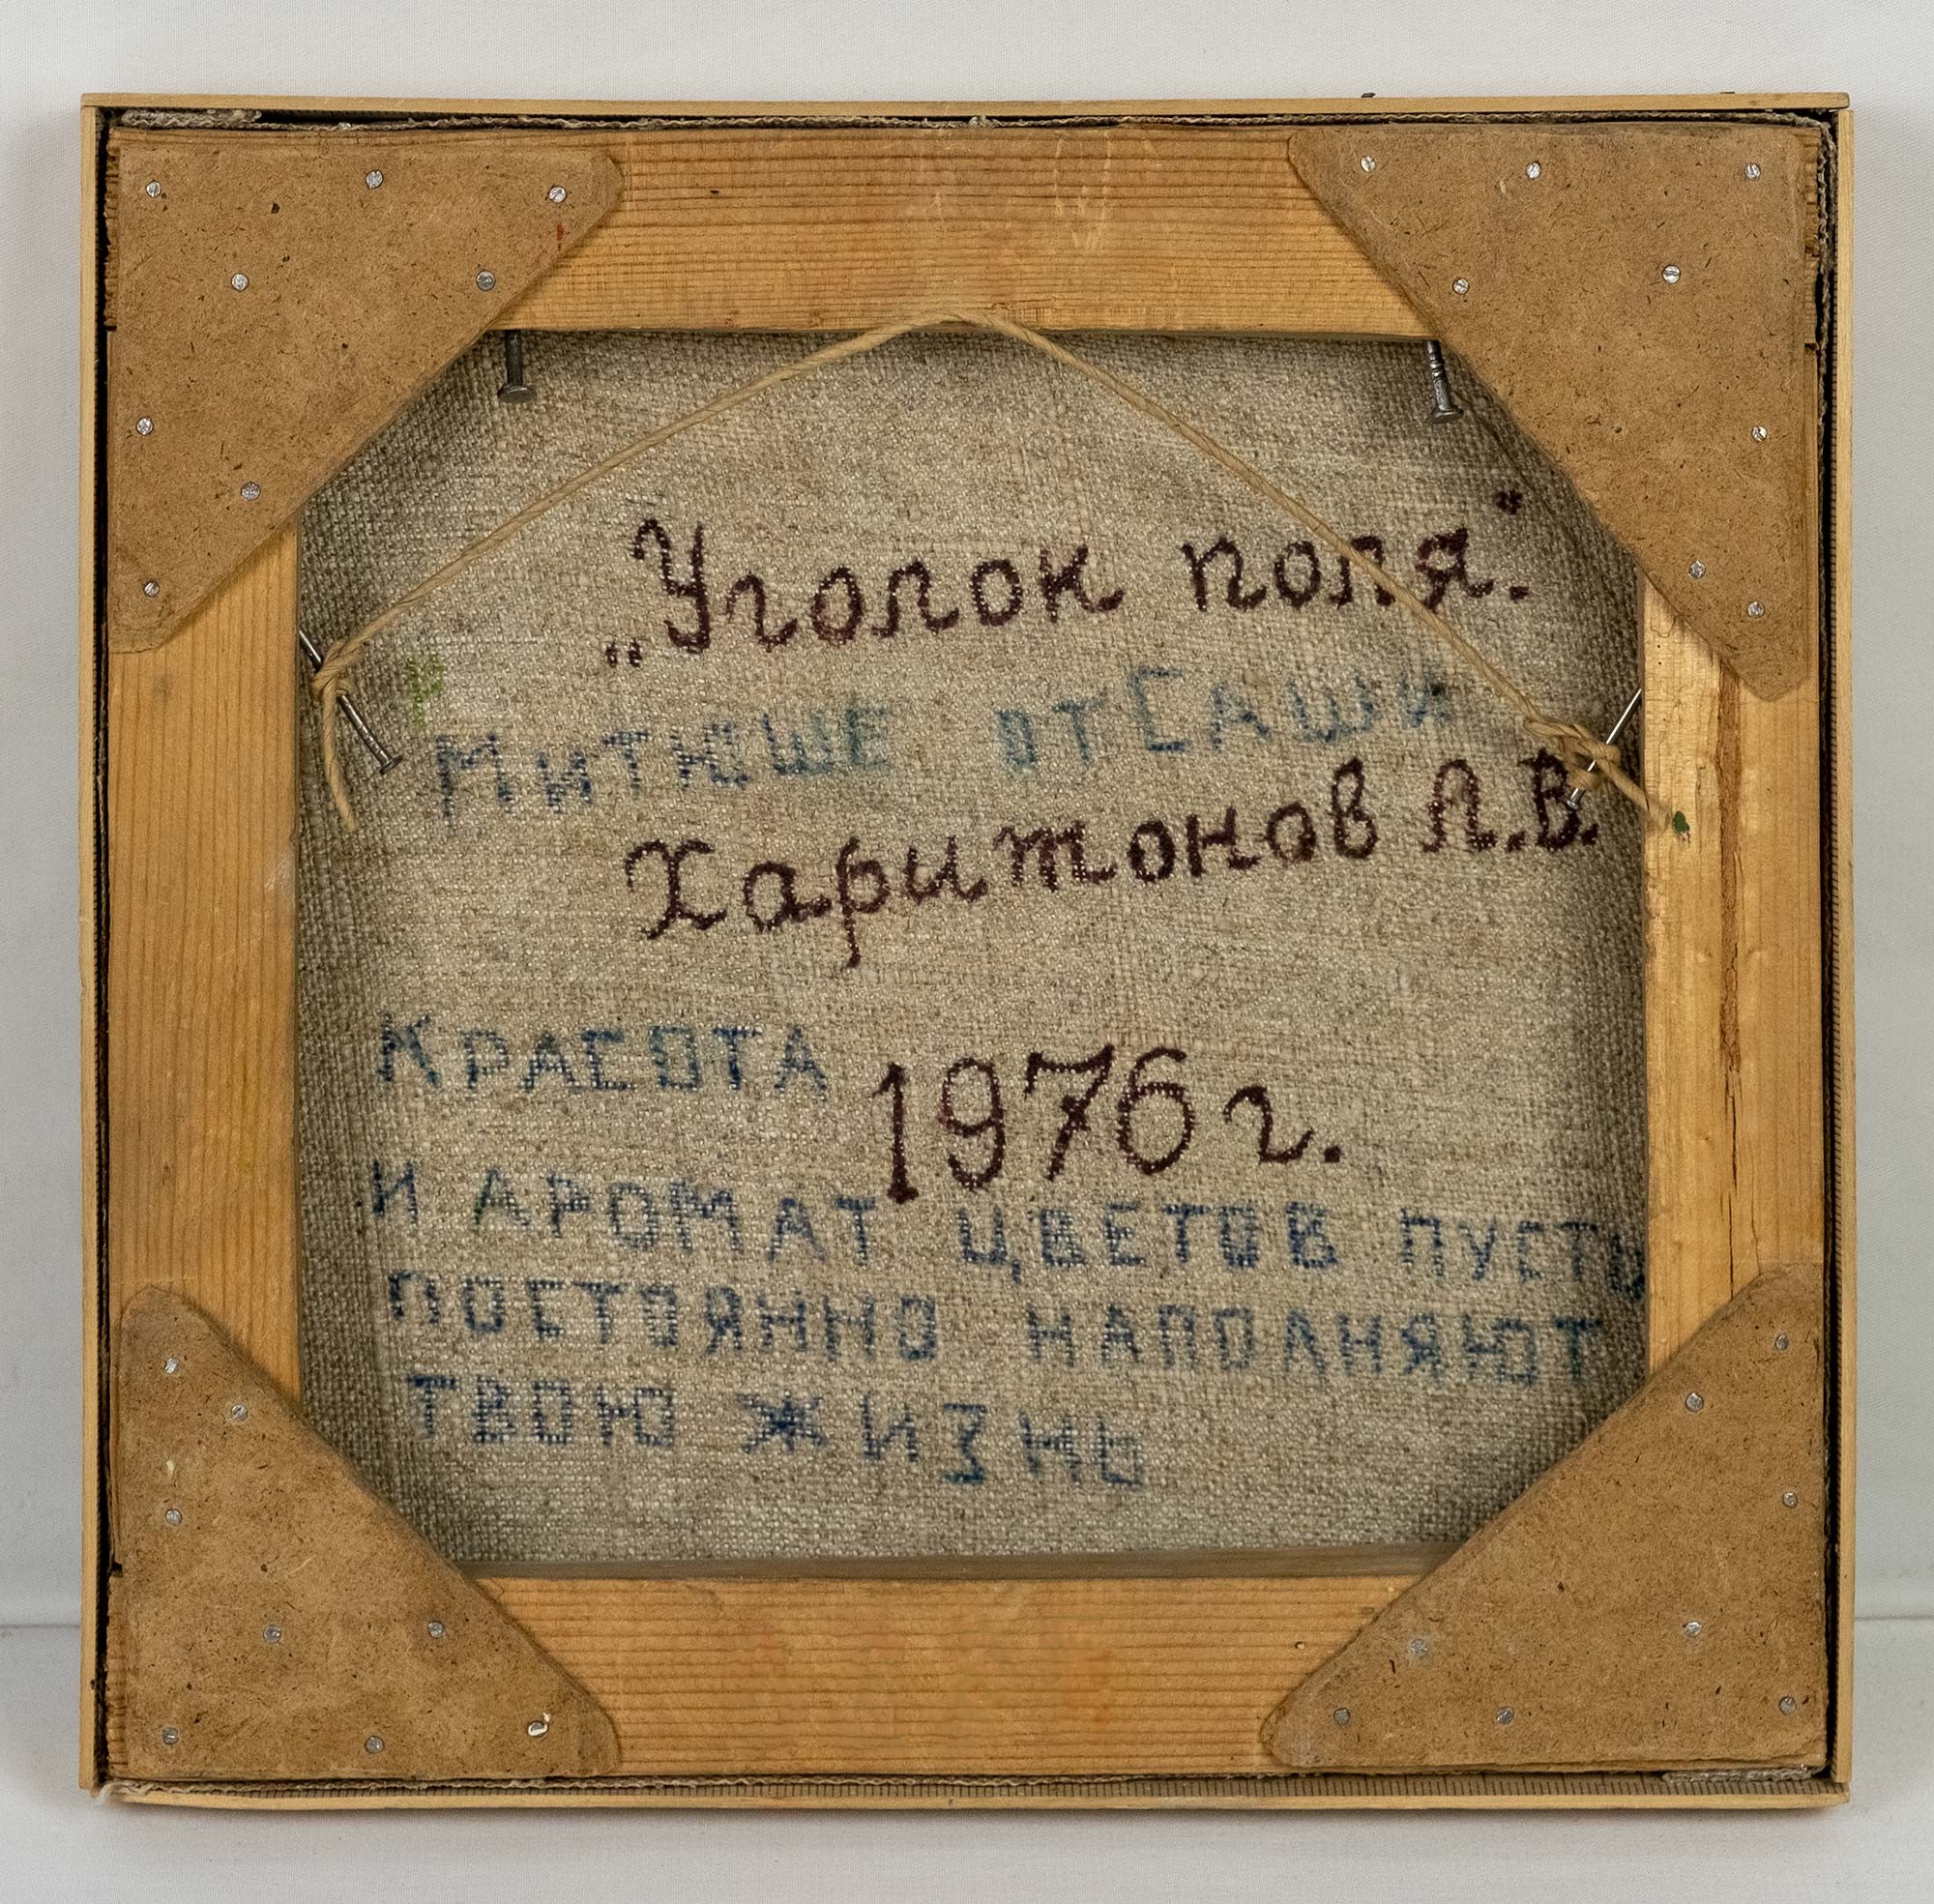 „Уголок поля".
МИТЮШЕ ОТ САШИ
Харитонов Л.В.
КРАСОТА
1976 г.
И АРОМАТ ЦВЕТОВ ПУСТЬ
ПОСТОЯННО НАПОЛНЯЮТ
ТВОЮ ЖИЗНЬ